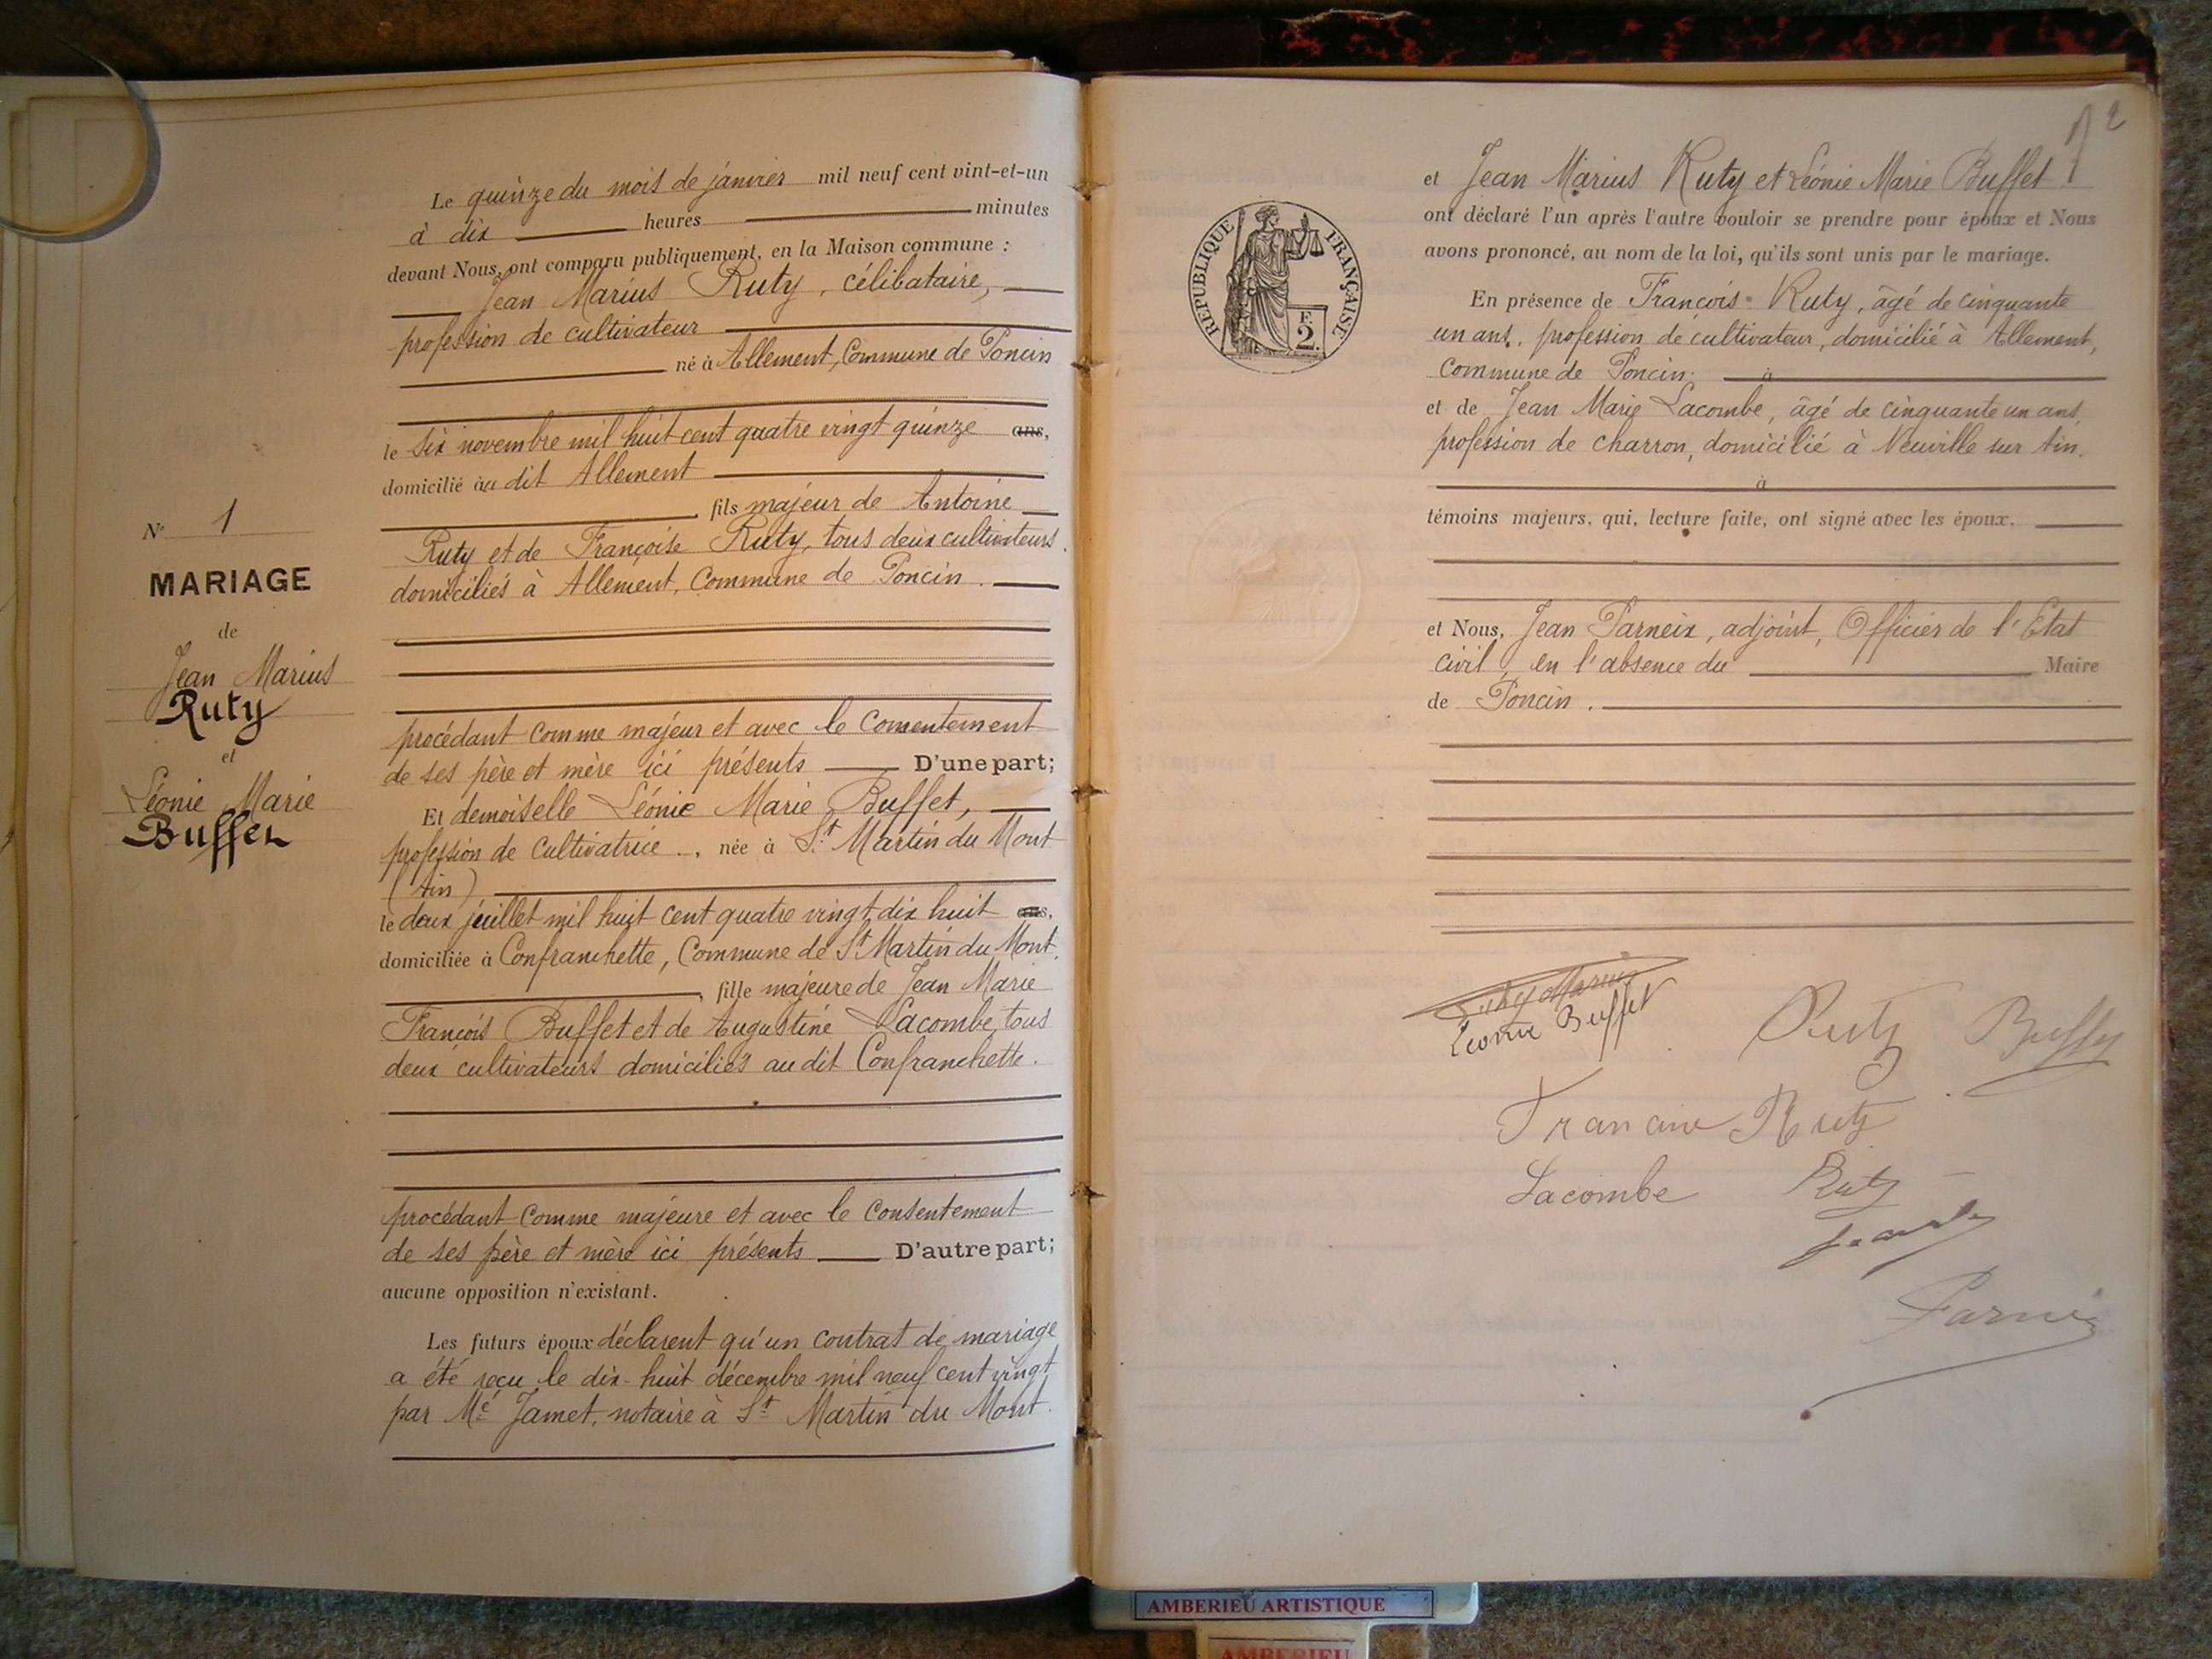 Le quinze du mois de janvier mil neuf cent vint-et-un
à dix heures minutes
devant Nous, ont comparu publiquement, en la Maison commune :
Jean Marius Ruty, célibataire,
profession de cultivateur
né à Allement, Commune de Poncin
le six novembre mil huit cent quatre vingt quinze ans,
domicilié au dit Allement
, fils majeur de Antoine
Ruty et de Françoise Ruty, tous deux cultivateurs
domiciliés à Allement, Commune de Poncin.
N° 1
MARIAGE
de
Jean Marius
Ruty
et
Léonie Marie
Buffet
procédant comme majeur et avec le consentement
de ses père et mère ici présents D'une part;
Et demoiselle Léonie Marie Buffet,
profession de Cultivatrice, née à St Martin du Mont
(Ain)
le deux juillet mil huit cent quatre vingt dix huit ans,
domiciliée à Confranchette, Commune de St Martin du Mont.
, fille majeure de Jean Marie
François Buffet et de Augustine Lacombe, tous
deux cultivateurs domiciliés au dit Confranchette.
procédant comme majeure et avec le consentement
de ses père et mère ici présents D'autre part;
aucune opposition n'existant.
Les futurs époux déclarent qu'un contrat de mariage
a été reçu le dix-huit décembre mil neuf cent vingt
par Me Jamet, notaire à St Martin du Mont.
2
et Jean Marius Ruty et Léonie Marie Buffet
ont déclaré l'un après l'autre vouloir se prendre pour époux et Nous
avons prononcé, au nom de la loi, qu'ils sont unis par le mariage.
REPUBLIQUE FRANÇAISE
F.
2.
En présence de François Ruty, âgé de cinquante
un ans, profession de cultivateur, domicilié à Allement,
Commune de Poncin. à
et de Jean Marie Lacombe, âgé de cinquante un ans,
profession de charron, domicilié à Neuville sur Ain.
à
témoins majeurs, qui, lecture faite, ont signé avec les époux.
et Nous, Jean Parneix, adjoint, Officier de l'Etat
civil, en l'absence du Maire
de Poncin.
Ruty Marius
Léonie Buffet
Ruty Buffet
Ruty
Lacombe Ruty
AMBERIEU ARTISTIQUE
AMBERIEU